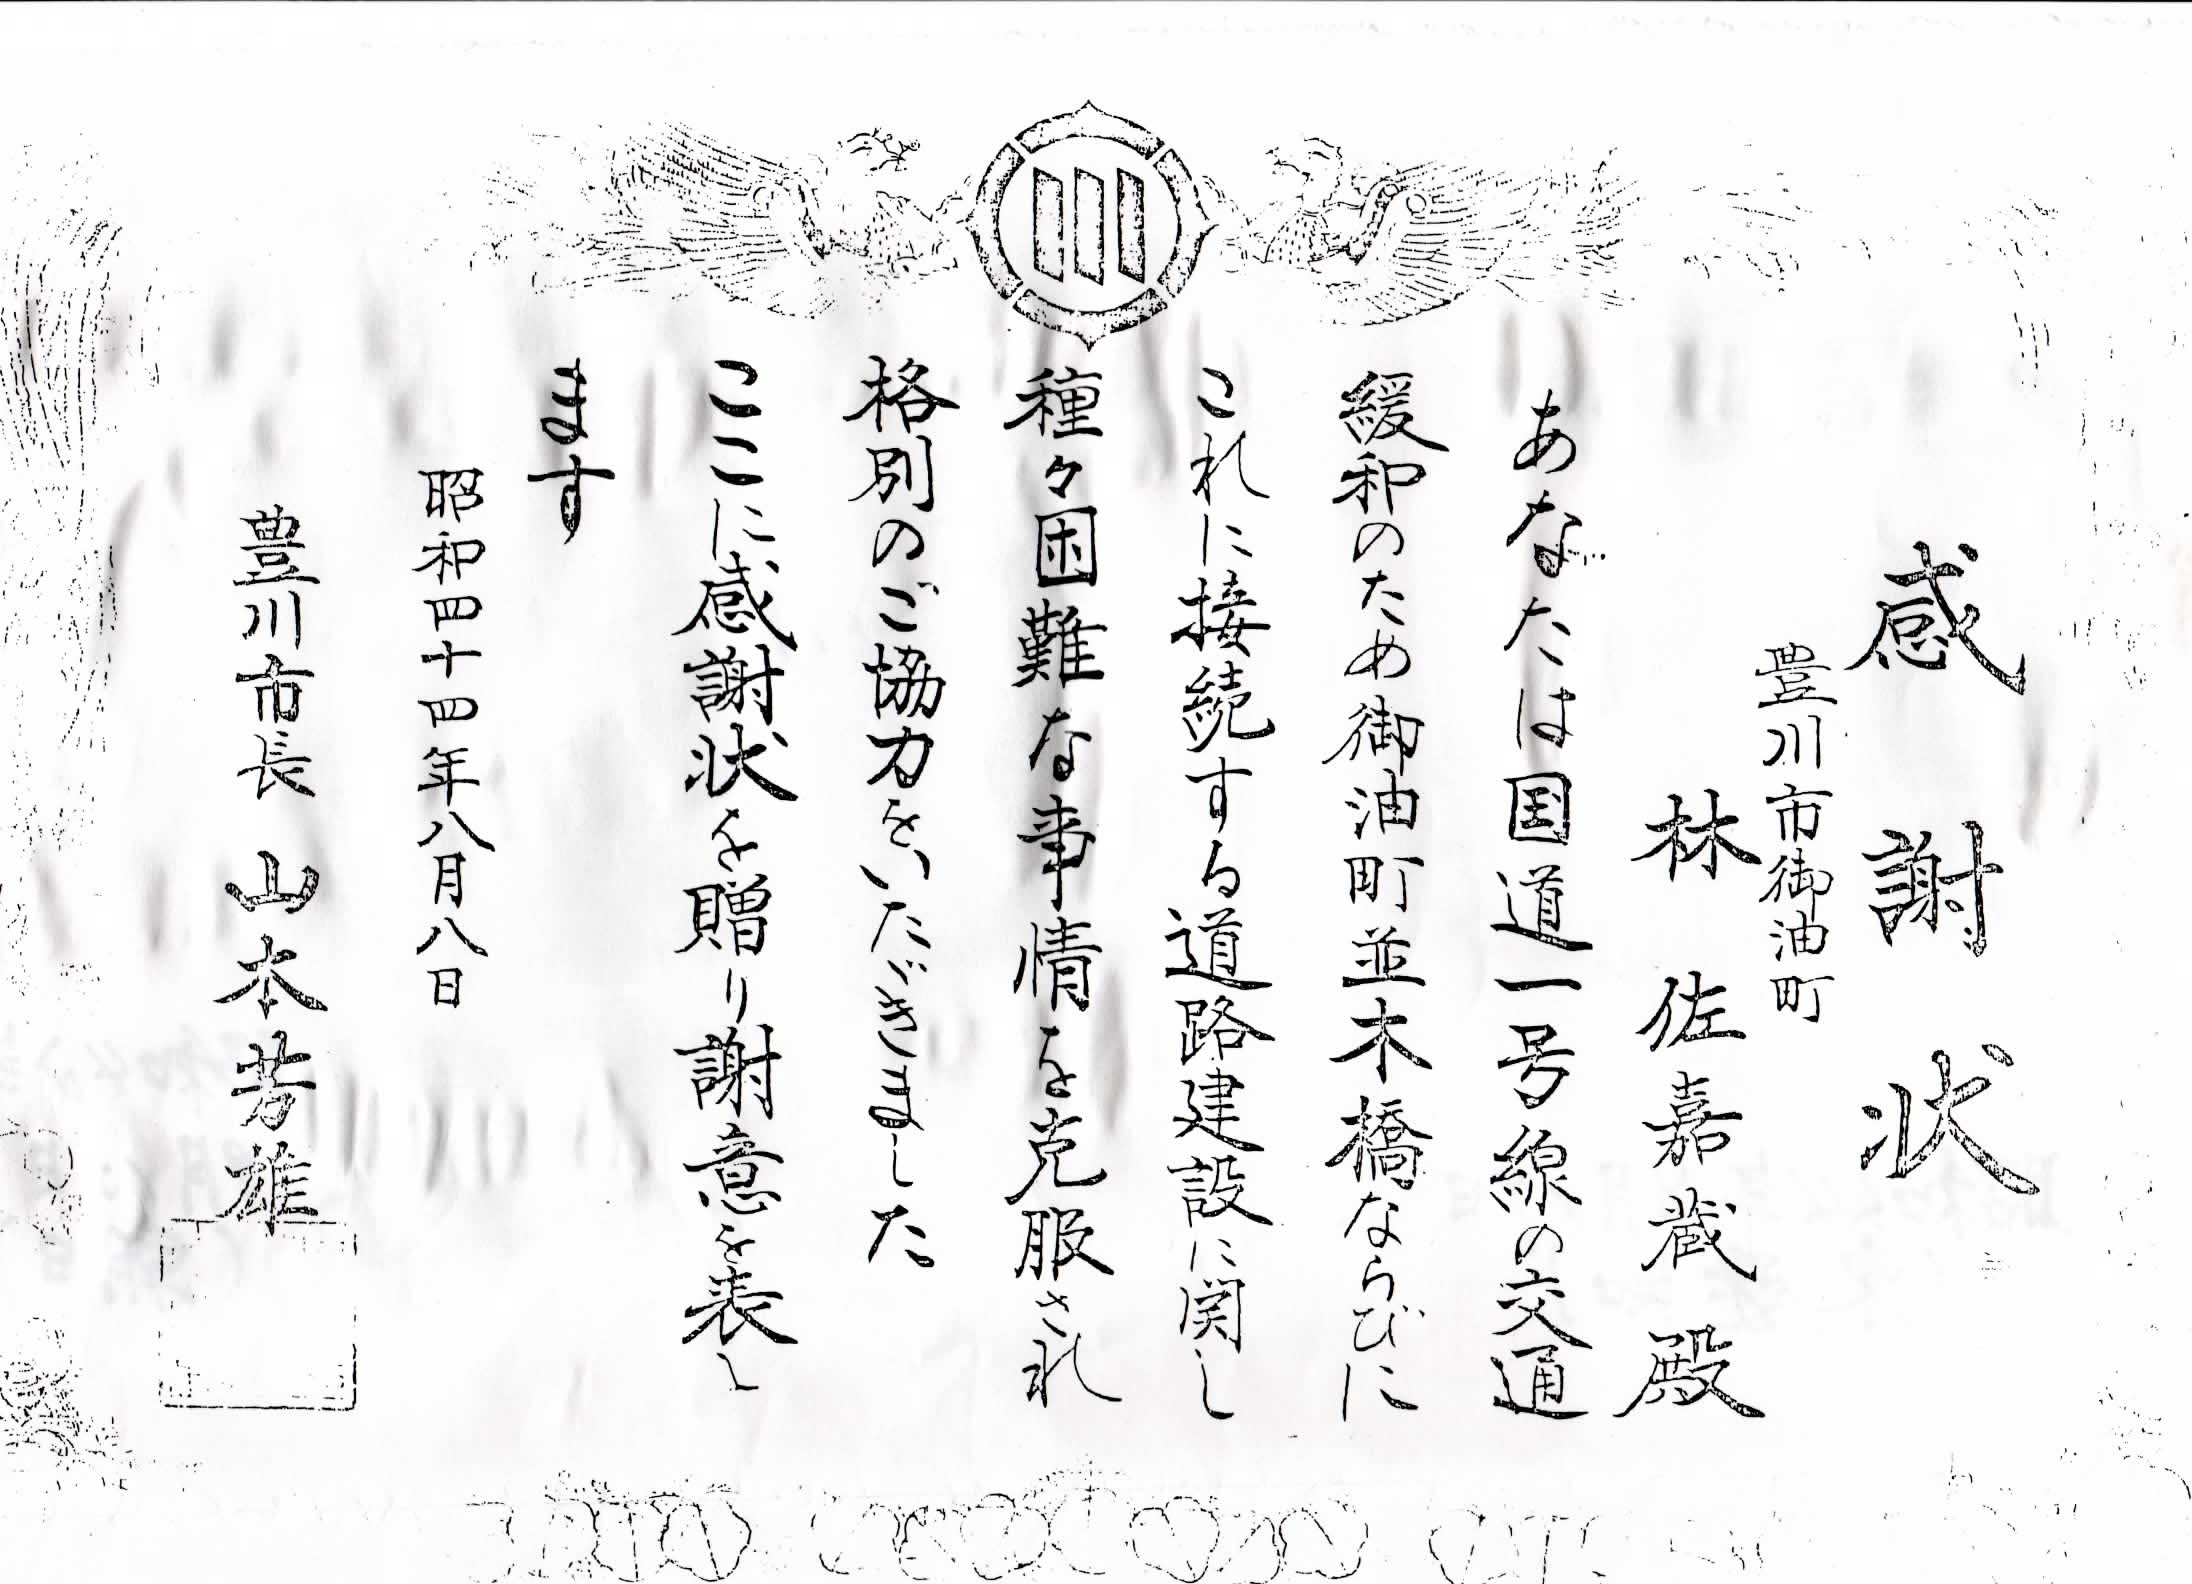 感謝状
豊川市御油町
林佐嘉蔵殿
あなたは国道一号線の交通
緩和のため御油町並木橋ならびに
これに接続する道路建設に関し
種々困難な事情を克服され
格別のご協力をいただきました
ここに感謝状を贈り謝意を表し
ます
昭和四十四年八月八日
豊川市長 山本芳雄